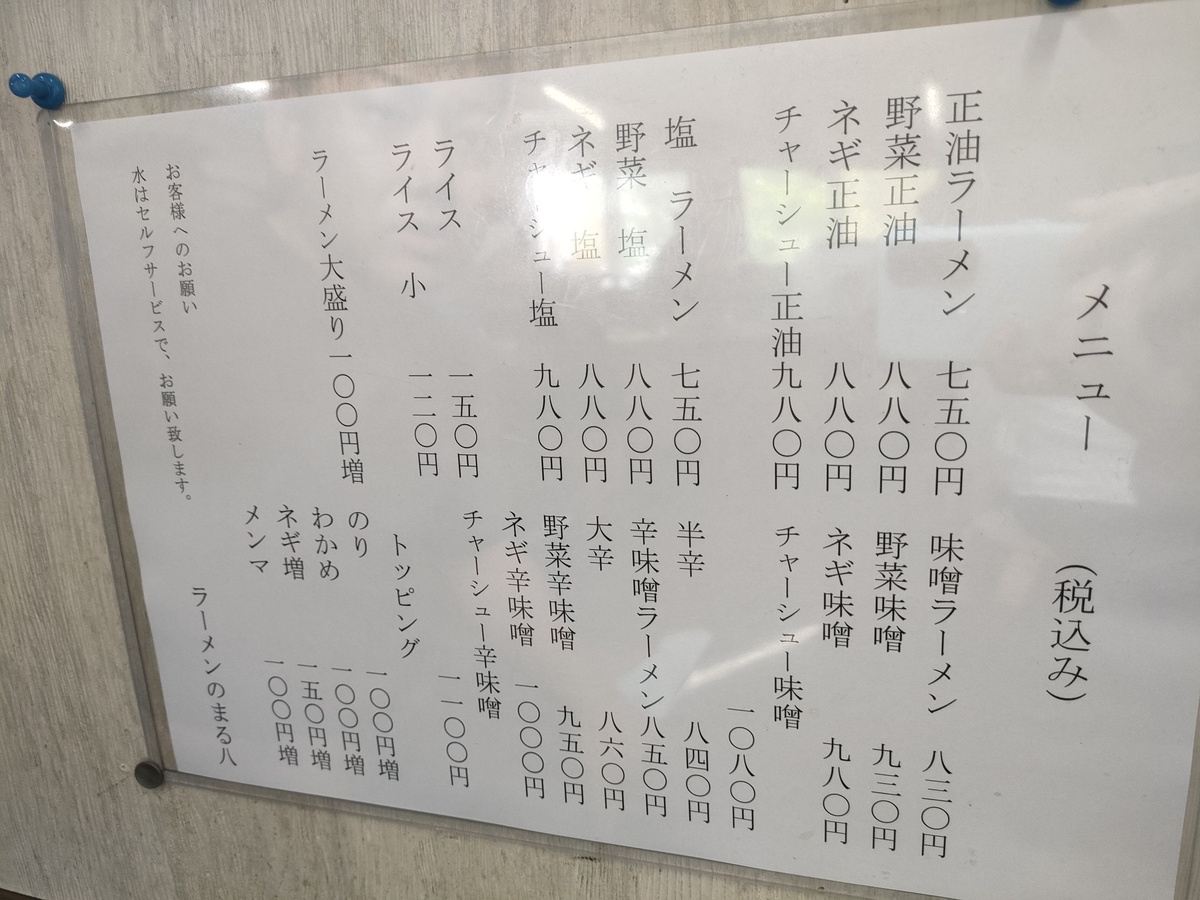 メニュー　（税込み）
正油ラーメン　七五〇円
野菜正油　八八〇円
ネギ正油　八八〇円
チャーシュー正油　九八〇円
塩　ラーメン　七五〇円
野菜　塩　八八〇円
ネギ　塩　八八〇円
チャーシュー塩　九八〇円
ライス　一五〇円
ライス　小　一二〇円
ラーメン大盛り　一〇〇円増
味噌ラーメン　八三〇円
野菜味噌　九三〇円
ネギ味噌　九八〇円
チャーシュー味噌　一〇八〇円
半辛　八四〇円
辛味噌ラーメン　八五〇円
大辛　八六〇円
野菜辛味噌　九五〇円
ネギ辛味噌　一〇〇〇円
チャーシュー辛味噌　一一〇〇円
トッピング
のり　一〇〇円増
わかめ　一〇〇円増
ネギ増　一五〇円増
メンマ　一〇〇円増
お客様へのお願い
水はセルフサービスで、お願い致します。
ラーメンのまる八